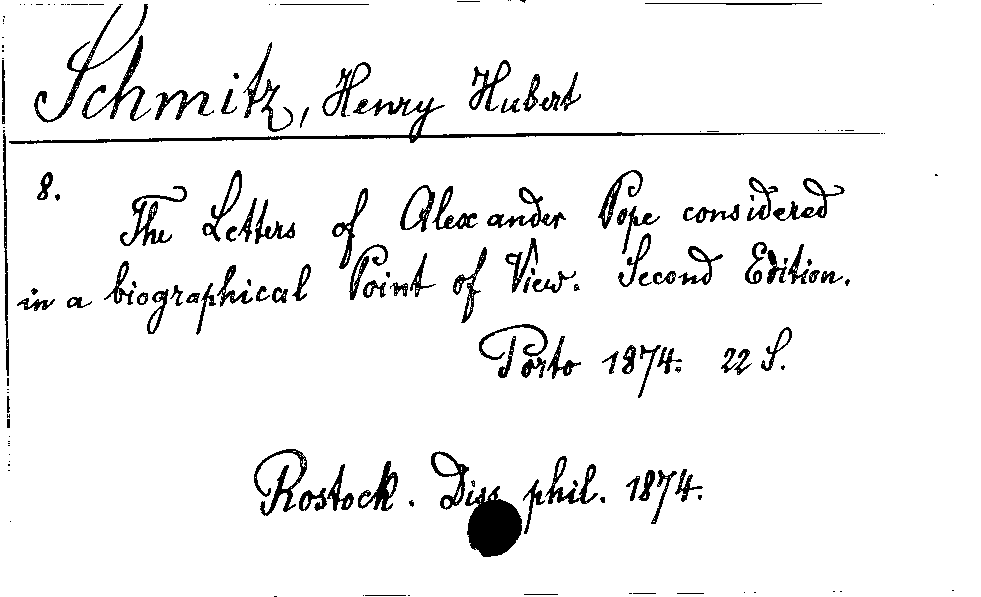 Schmitz, Henry Hubert
8.
The Letters of Alexander Pope considered
in a biographical Point of View. Second Edition.
Porto 1874. 22 S.
Rostock. Diss phil. 1874.